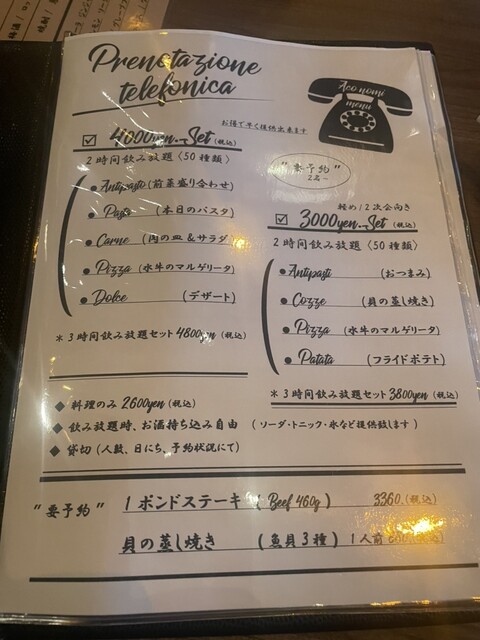 Prenotazione
telefonica
Aco nomi
menu
お得で早く提供出来ます
4000yen.-Set (税込)
2時間飲み放題〈50種類〉
Antipasto (前菜盛り合わせ)
Pasta (本日のパスタ)
Carne (肉の皿&サラダ)
Pizza (水牛のマルゲリータ)
Dolce (デザート)
*3時間飲み放題セット4800yen (税込)
"要予約"
2名〜
軽め/2次会向き
3000yen.-Set (税込)
2時間飲み放題〈50種類〉
Antipasti (おつまみ)
Cozze (貝の蒸し焼き)
Pizza (水牛のマルゲリータ)
Patata (フライドポテト)
*3時間飲み放題セット3800yen (税込)
◆ 料理のみ2600yen (税込)
◆ 飲み放題時、お酒持ち込み自由 (ソーダ・トニック・氷など提供致します)
◆ 貸切 (人数、日にち、予約状況にて)
"要予約" 1ポンドステーキ (Beef 460g) 3360.(税込)
貝の蒸し焼き (魚貝3種) 1人前